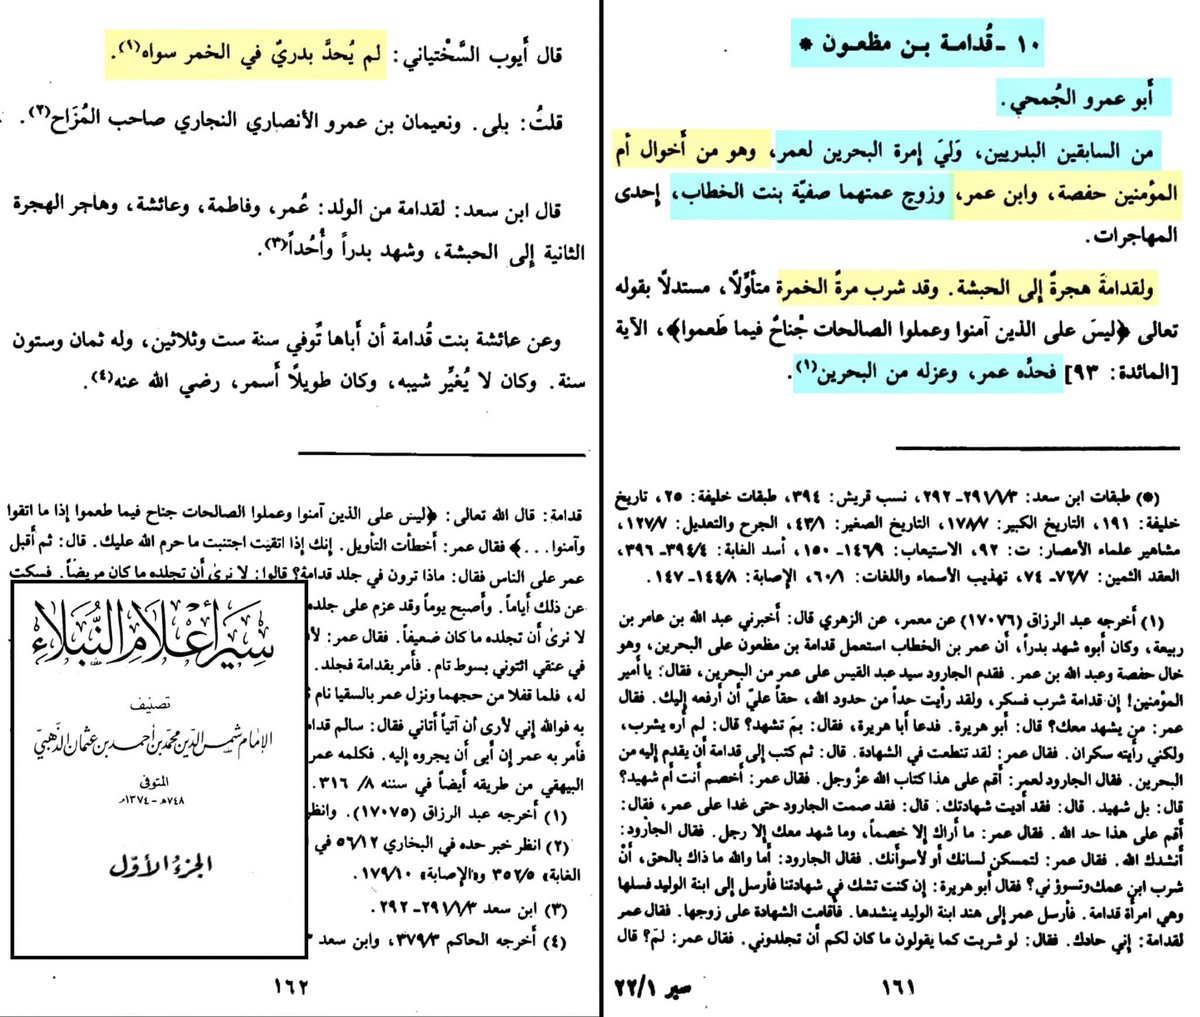 ١٠ - قُدامة بن مظعون *
أَبو عمرو الجُمحي .
من السابقين البدريين، وَليَ إمرة البحرين لعمر، وهو من أَخوال أم
المؤمنين حفصة، وابن عمر، وزوج عمتهما صفيّة بنت الخطاب، إحدى
المهاجرات .
ولقدامةَ هجرةً إلى الحبشة . وقد شرب مرةً الخمرة متأوِّلًا، مستدلًا بقوله
تعالى ﴿ليسَ على الذين آمنوا وعملوا الصالحات جُناحٌ فيما طَعموا﴾، الآية
[المائدة: ٩٣] فحدَّه عمر، وعزله من البحرين(١) .
(*) طبقات ابن سعد: ٢٩١/١/٣ـ ٢٩٢، نسب قريش: ٣٩٤، طبقات خليفة: ٢٥، تاريخ
خليفة: ١٩١، التاريخ الكبير: ١٧٨/٧، التاريخ الصغير: ٤٣/١، الجرح والتعديل: ١٢٧/٧،
مشاهير علماء الأمصار: ت: ٩٢، الاستيعاب: ١٤٦/٩ـ ١٥٠، أسد الغابة: ٣٩٤/٤ـ ٣٩٦،
العقد الثمين: ٧٢/٧ـ ٧٤، تهذيب الأسماء واللغات: ٦٠/١، الإصابة: ١٤٤/٨ـ ١٤٧ .
(١) أخرجه عبد الرزاق (١٧٠٧٦) عن معمر، عن الزهري قال: أخبرني عبد الله بن عامر بن
ربيعة، وكان أبوه شهد بدراً، أن عمر بن الخطاب استعمل قدامة بن مظعون على البحرين، وهو
خال حفصة وعبد الله بن عمر. فقدم الجارود سيد عبد القيس على عمر من البحرين، فقال: يا أمير
المؤمنين! إن قدامة شرب فسكر، ولقد رأيت حداً من حدود الله، حقاً عليّ أن أرفعه إليك. فقال
عمر: من يشهد معك؟ قال: أبو هريرة. فدعا أبا هريرة، فقال: بمَ تشهد؟ قال: لم أره يشرب،
ولكني رأيته سكران. فقال عمر: لقد تنطعت في الشهادة. قال: ثم كتب إلى قدامة أن يقدم إليه من
البحرين. فقال الجارود لعمر: أقم على هذا كتاب الله عزّ وجل. فقال عمر: أخصم أنت أم شهيد؟
قال: بل شهيد. قال: فقد أديت شهادتك. قال: فقد صمت الجارود حتى غدا على عمر، فقال:
أقم على هذا حد الله. فقال عمر: ما أراك إلا خصماً، وما شهد معك إلا رجل. فقال الجارود:
أنشدك الله. فقال عمر: لتمسكن لسانك أو لأسوأنك. فقال الجارود: أما والله ما ذاك بالحق، أنْ
شرب ابن عمك وتسوؤني؟ فقال أبو هريرة: إن كنت تشك في شهادتنا فأرسل إلى ابنة الوليد فسلها
وهي امرأة قدامة. فأرسل عمر إلى هند ابنة الوليد ينشدها. فأقامت الشهادة على زوجها. فقال عمر
لقدامة: إني حادك. فقال: لو شربت كما يقولون ما كان لكم أن تجلدوني. فقال عمر: لمَ؟ قال
١٦١
سير ٢٢/١
قال أَيوب السَّخْتياني: لم يُحدَّ بدريٌ في الخمر سواه(١) .
قلتُ: بلى . ونعيمان بن عمرو الأنصاري النجاري صاحب المُزَاح(٢) .
قال ابن سعد: لقدامة من الولد: عُمر، وفاطمة، وعائشة، وهاجر الهجرة
الثانية إلى الحبشة، وشهد بدراً وأُحُداً(٣) .
وعن عائشة بنت قُدامة أن أباها تُوفي سنة ست وثلاثين، وله ثمان وستون
سنة . وكان لا يُغيِّر شيبه، وكان طويلًا أسمر، رضي الله عنه(٤) .
قدامة: قال الله تعالى: ﴿ليس على الذين آمنوا وعملوا الصالحات جناح فيما طعموا إذا ما اتقوا
وآمنوا . . .﴾ فقال عمر: أخطأت التأويل. إنك إذا اتقيت اجتنبت ما حرم الله عليك. قال: ثم أقبل
عمر على الناس فقال: ماذا ترون في جلد قدامة؟ قالوا: لا نرى أن تجلده ما كان مريضاً. فسكت
عن ذلك أياماً. وأصبح يوماً وقد عزم على جلده
لا نرى أن تجلده ما كان ضعيفاً. فقال عمر:
في عنقي ائتوني بسوط تام. فأمر بقدامة فجلد.
له، فلما قفلا من حجهما ونزل عمر بالسقيا نام
به فوالله إني لأرى أن آتياً أتاني فقال: سالم
فأمر به عمر إن أبى أن يجروه إليه. فكلمه عمر
البيهقي من طريقه أيضاً في سننه ٨/ ٣١٦ .
(١) أخرجه عبد الرزاق (١٧٠٧٥).
(٢) انظر خبر حده في البخاري ٥٦/١٢ في
الغابة» ٣٥٢/٥ و«الإصابة» ١٧٩/١٠ .
(٣) ابن سعد ٢٩١/١/٣ـ ٢٩٢ .
(٤) أخرجه الحاكم ٣٧٩/٣، وابن سعد
١٦٢
سير أعلام النبلاء
تصنيف
الإمام شمس الدين محمد بن أحمد بن عثمان الذهبي
المتوفى
٧٤٨هـ - ١٣٧٤م
الجزء الأول